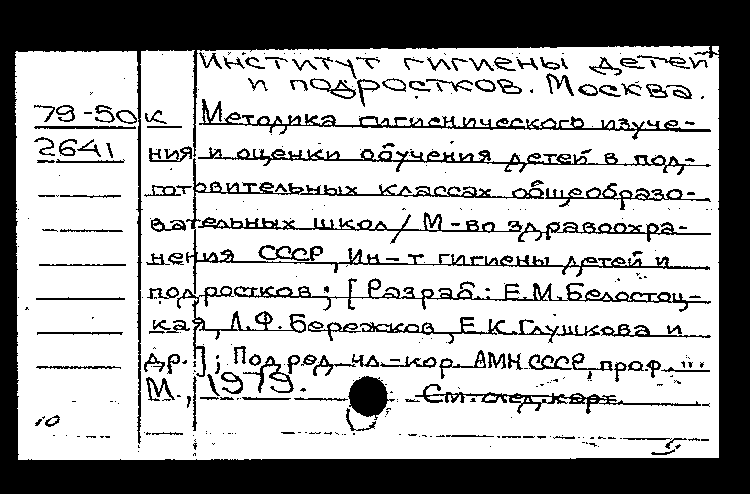 Институт гигиены детей
и подростков. Москва.
79-50 к Методика гигиенического изуче-
2641 ния и оценки обучения детей в под-
готовительных классах общеобразо-
вательных школ / М-во здравоохра-
нения СССР, Ин-т гигиены детей и
подростков; [Разраб.: Е.М. Белостоц-
кая, Л.Ф. Бережков, Е.К. Глушкова и
др.]; Под ред. чл.-кор. АМН СССР, проф. ...
М., 1979. См. след. карт.
10